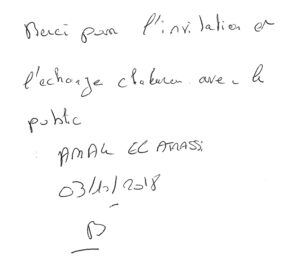 Merci pour l'invitation et
l'échange chaleureux avec le
public
AMAL EL ATRASSI
03/10/2018